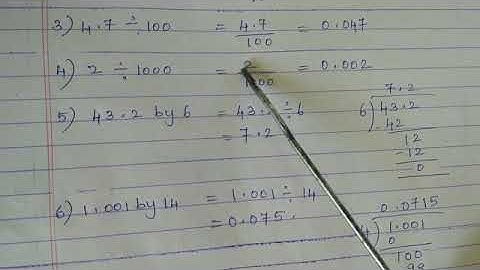 3) 4.7 ÷ 100 = 4.7/100 = 0.047
4) 2 ÷ 1000 = 2/1000 = 0.002
5) 43.2 by 6 = 43.2 ÷ 6
= 7.2
7.2
6) 43.2
-42
12
-12
0
6) 1.001 by 14 = 1.001 ÷ 14
= 0.075.
0.0715
) 1.001
0
100
98